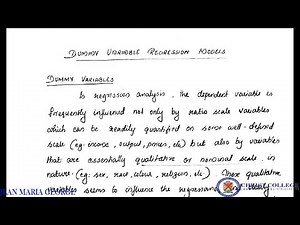 DUMMY VARIABLE REGRESSION MODELS
DUMMY VARIABLES
In regression analysis, the dependent variable is
frequently influenced not only by ratio scale variables
which can be readily quantified on some well-defined
scale (eg: income, output, prices, etc) but also by variables
that are essentially qualitative or nominal scale, in
nature. (eg: sex, race, colour, religion, etc). These qualitative
variables seems to influence the regressand
MARIA GEORGE
COLLEGE